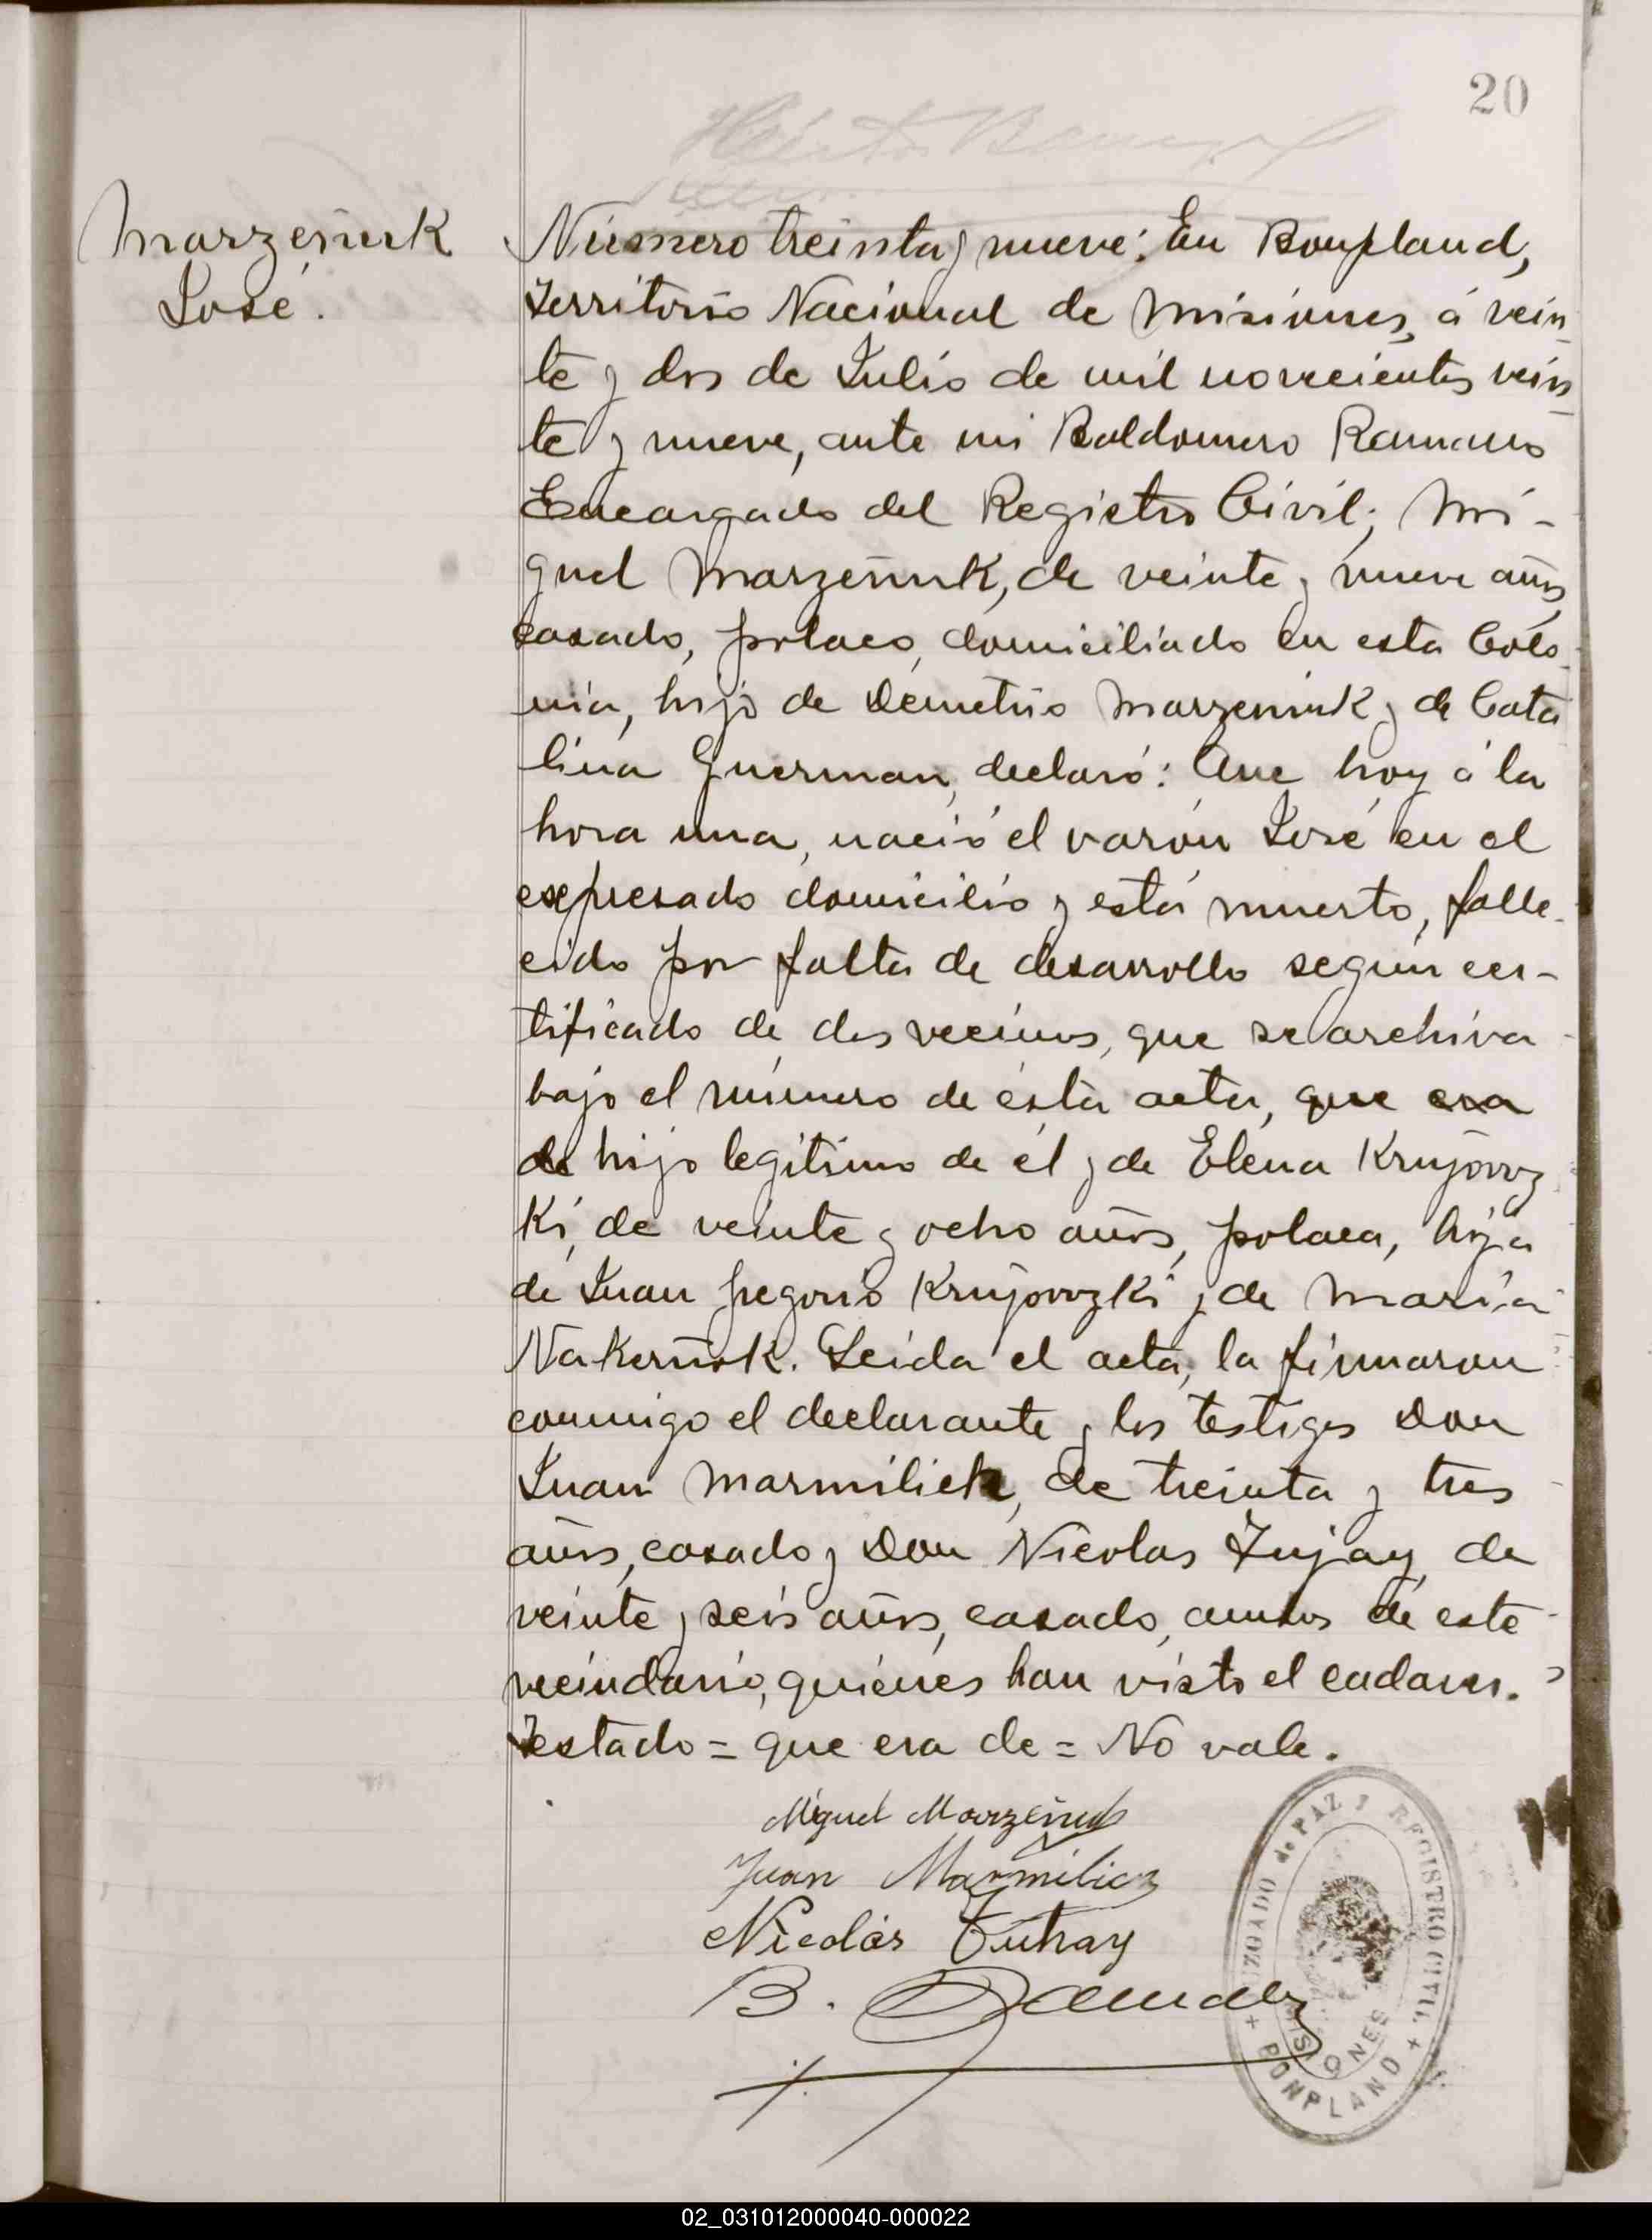 20
Marzeñuk
José.
Número treinta y nueve: En Bonpland,
Territorio Nacional de Misiones, á vein
te y dos de Julio de mil novecientos vein
te y nueve, ante mi Baldomero Ramaus
Encargado del Registro Civil; Mi-
guel Marzeñuk, de veinte y nueve años,
casado, polaco, domiciliado en esta Colo-
nia, hijo de Demetrio Marzeniuk y de Cata
lina Guerman, declaró: Que hoy á la
hora una, nació el varón José en el
expresado domicilio y está muerto, falle-
cido por falta de desarrollo según cer-
tificado de dos vecinos, que se archiva
bajo el número de ésta acta, que era
de hijo legítimo de él y de Elena Krujovoz
ki, de veinte y ocho años, polaca, hija
de Juan Gregorio Krujovozki y de María
Nakerñuk. Leída el acta, la firmaron
conmigo el declarante y los testigos Don
Juan Marmilick, de treinta y tres
años, casado y Don Nicolas Tujay, de
veinte y seis años, casado, ambos de este
vecindario, quiénes han visto el cadaver.
Testado = que era de = No vale.
Miguel Marzeñuk
Juan Marmilicz
Nicolás Tuhay
B.
JUZGADO de PAZ y REGISTRO CIVIL
MISIONES
+ BONPLAND +
02_031012000040-000022